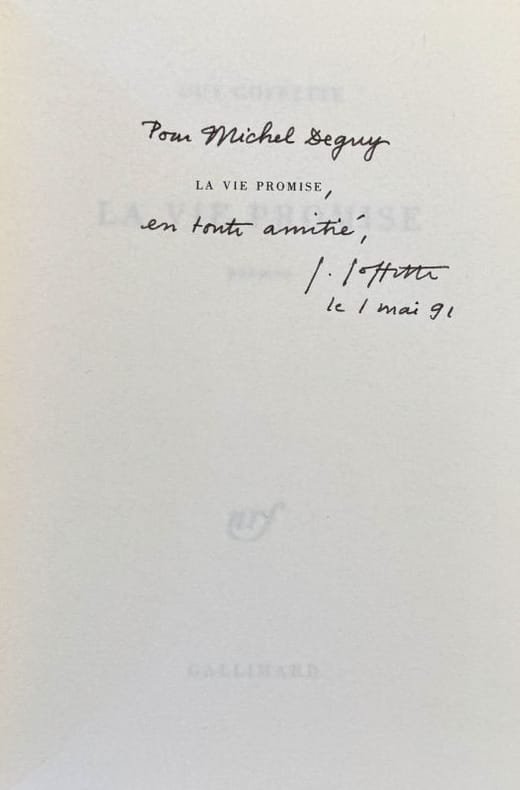 GUY GOFFETTE
Pour Michel Deguy
LA VIE PROMISE,
LA VIE PROMISE
en toute amitié,
poèmes
G. Goffette
le 1 mai 91
nrf
GALLIMARD